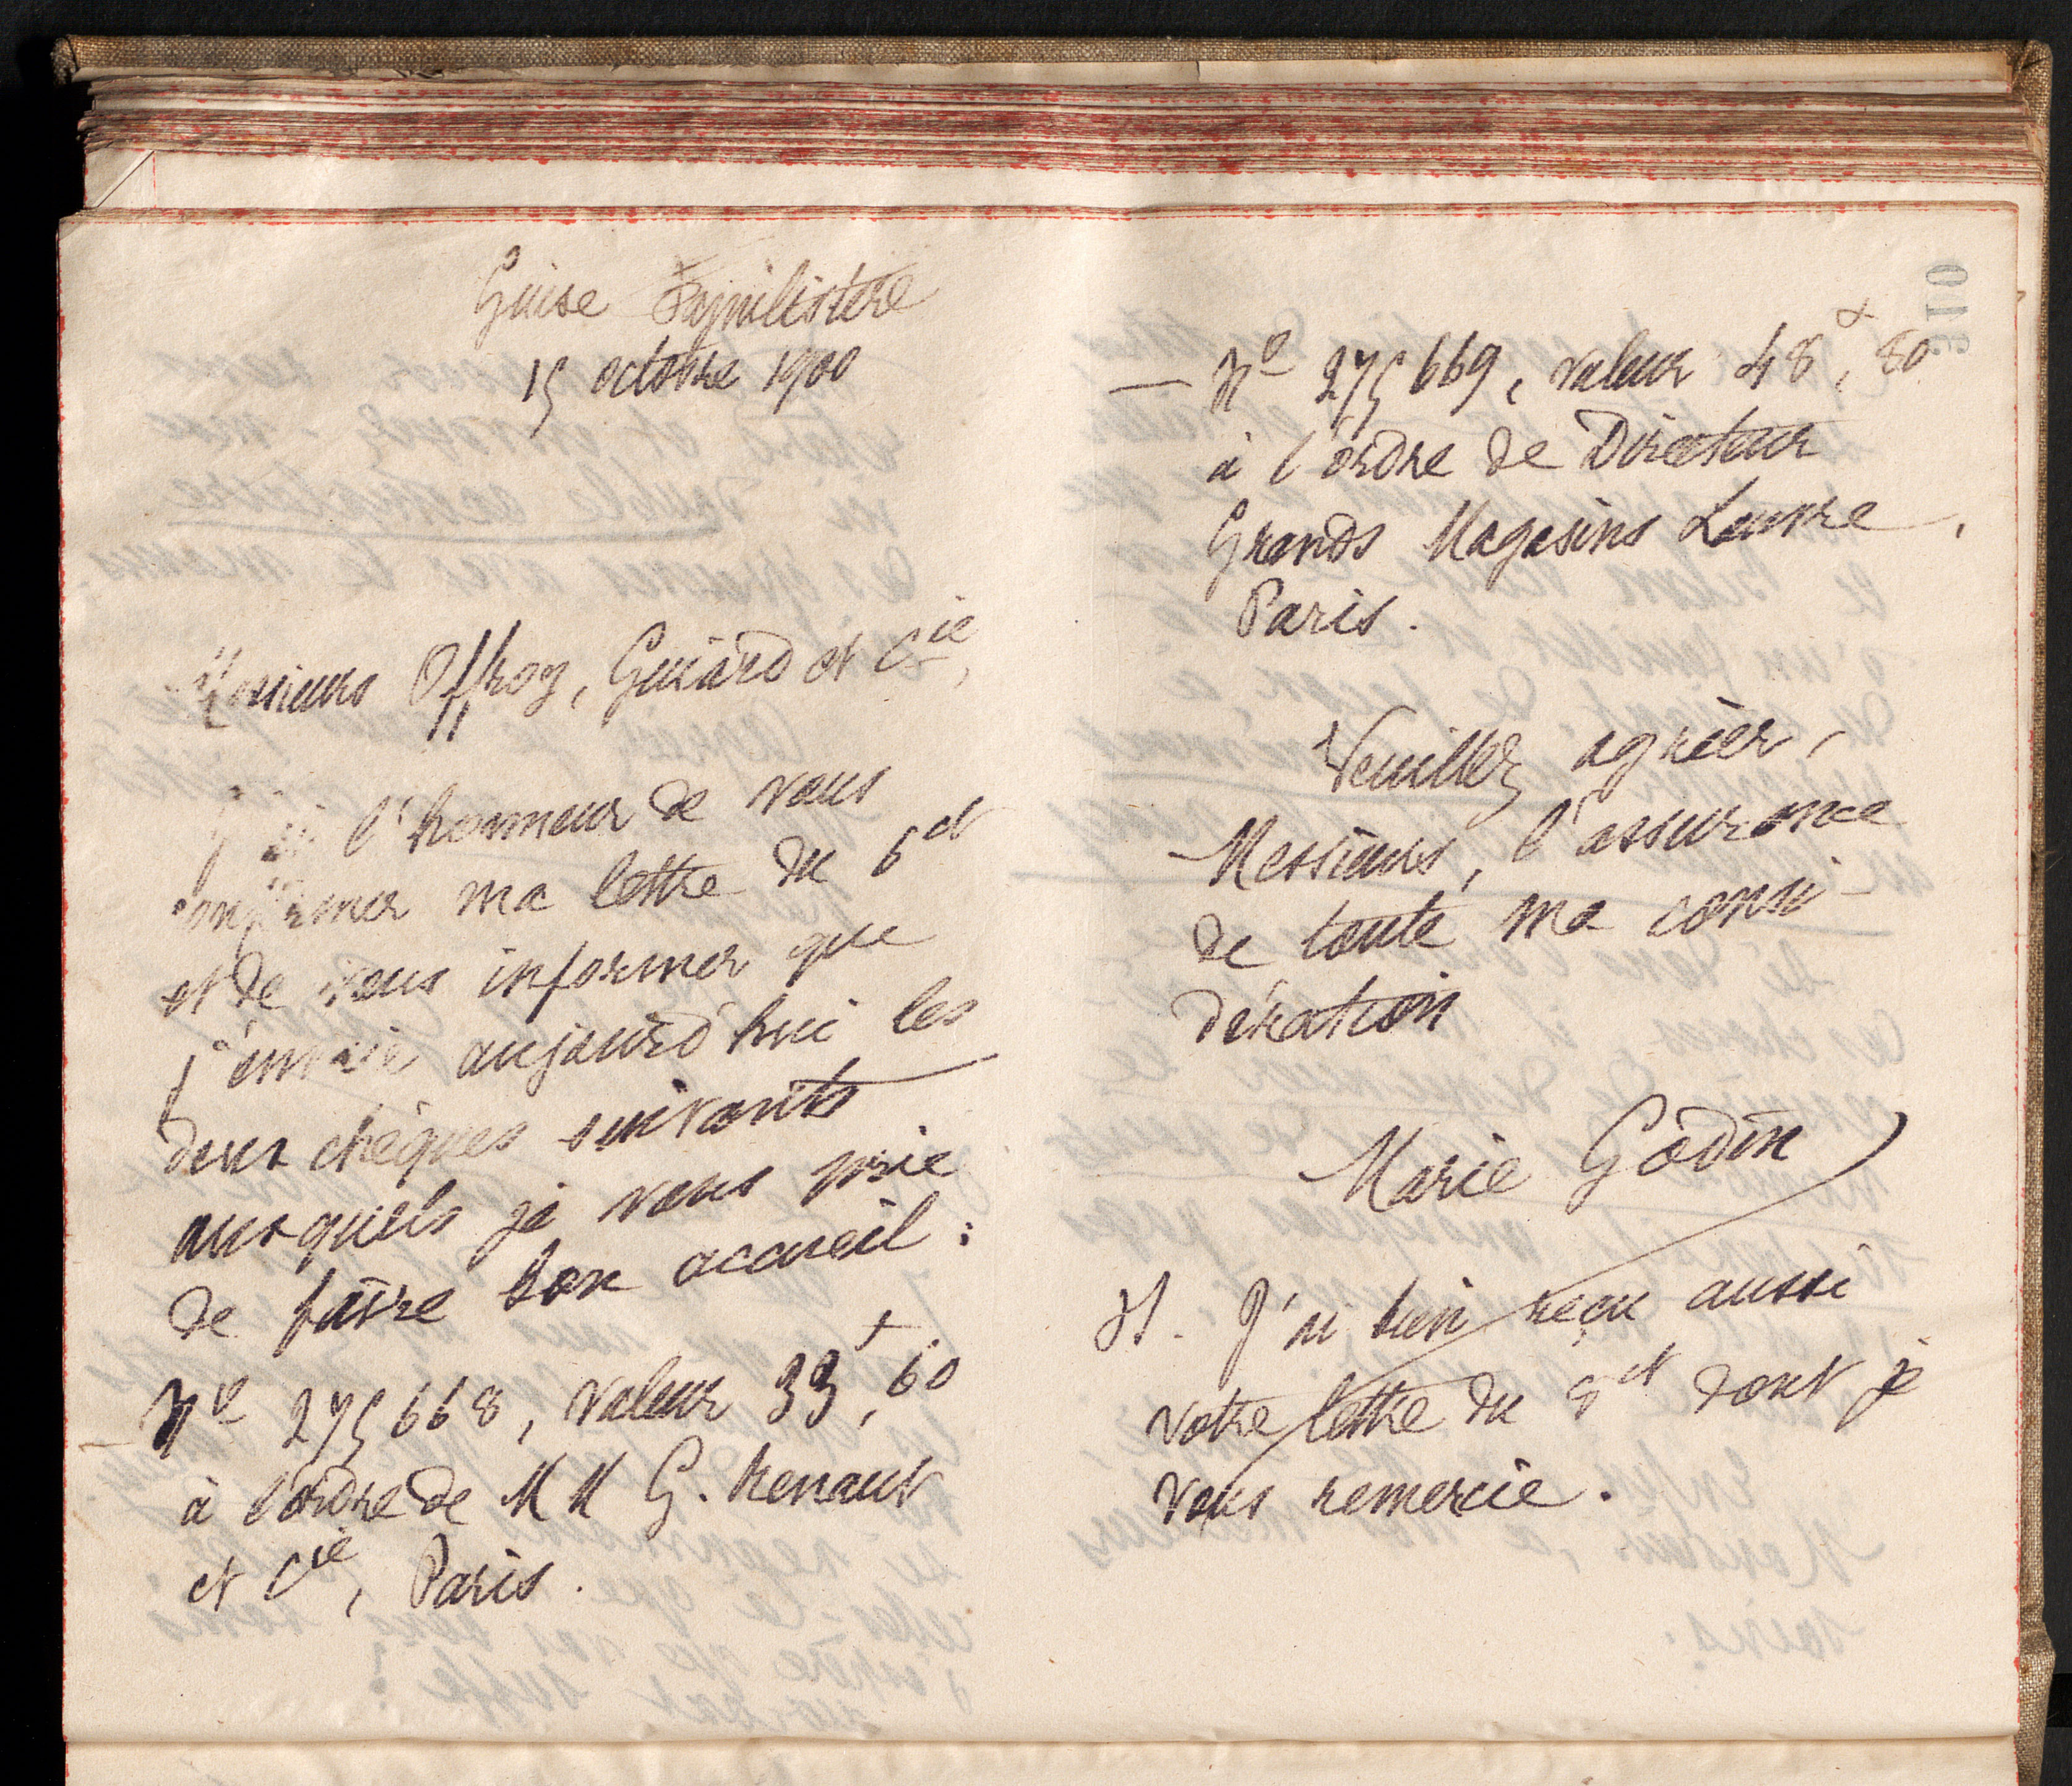 Guise Familistère
15 octobre 1900
Messieurs Offroy, Guiard et Cie,
J'ai l'honneur de vous
confirmer ma lettre du 6 ct
et de vous informer que
j'envoie aujourd'hui les
deux chèques suivants
auxquels je vous prie
de faire bon accueil :
— No 275668, valeur 33f,60
à l'ordre de MM G. Renault
et Cie, Paris.
— No 275669, valeur 48f,80
à l'ordre de Directeur
Grands Magasins Louvre,
Paris.
Veuillez agréer,
Messieurs, l'assurance
de toute ma consi-
dération
Marie Godin
J'ai bien reçu aussi
votre lettre du ct dont je
vous remercie.